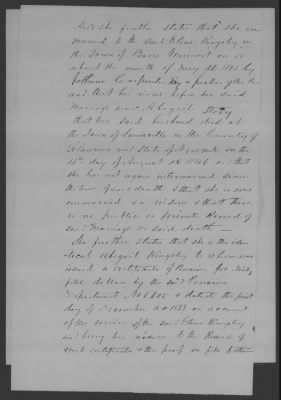 And she further states that she was
married to the said Elias Kingsley in
the Town of Barre Vermont on or
about the month of May AD 1793 by
Carpenter a Justice of the Peace
and that her name before her said
Marriage was Abigail Story
that her said husband died at
the Town of Louisville in the County of
St Lawrence and State of New York on the
15th day of August AD 1846 and that
she has not again intermarried since
the time of said death & that she is now
unmarried a widow & that there
is no public or private Record of
said Marriage or said death —
She further states that she is the iden-
tical Abigail Kingsley to whom was
issued a certificate of Pension for
dollars by the said Pension
Department No 6,805 & dated the first
day of December AD 1853 on account
of the service of the said Elias Kingsley
and being his widow to the Record of
such certificate & the proof on file